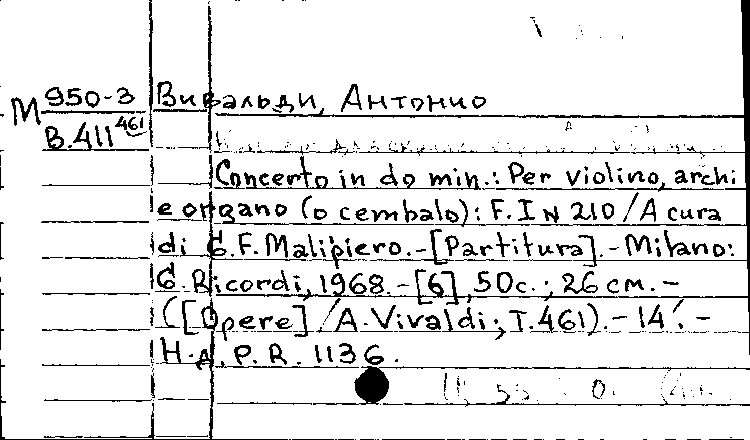 М 950-3 Вивальди, Антонио
В.411 461
Concerto in do min.: Per violino, archi
e organo (o cembalo): F.I N 210 / A cura
di G.F. Malipiero.-[Partitura].-Milano:
G. Ricordi, 1968.-[6], 50c.; 26 см.-
([Opere] / A. Vivaldi; T.461).-14'.-
Н.д. P.R. 1136.